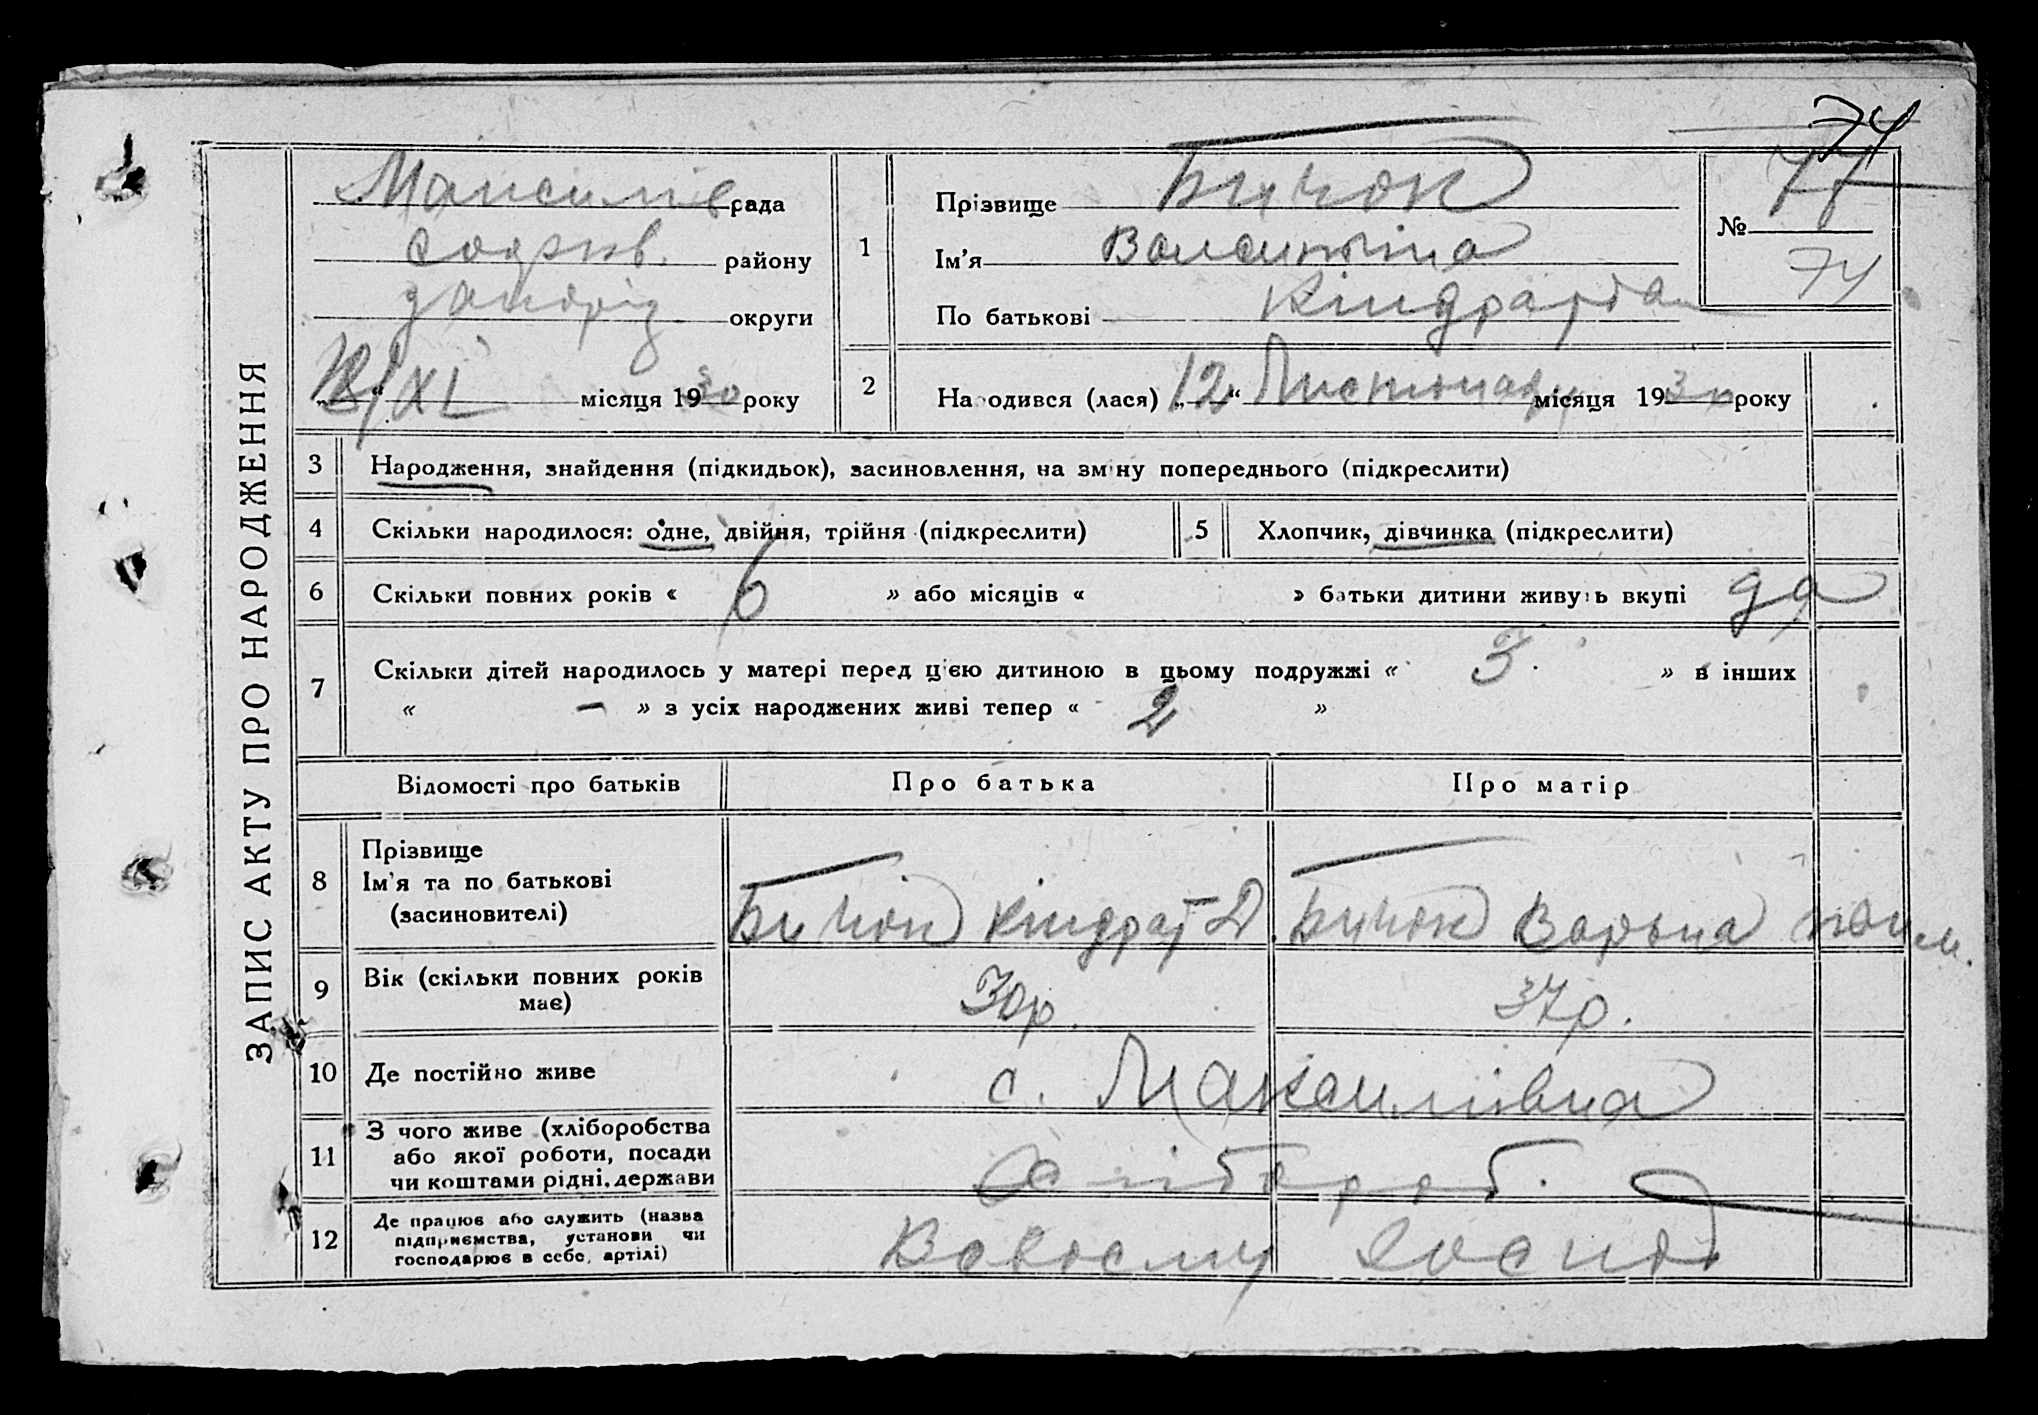 74
ЗАПИС АКТУ ПРО НАРОДЖЕННЯ
Максимів рада
Софїїв. району
Запоріз округи
XI місяця 1930 року
1
Прізвище Бичок
Ім'я Валентина
По батькові Кіндратов
№ 77
74
2
Народився (лася) „12“ Листопаду місяця 1930 року
3 Народження, знайдення (підкидьок), засиновлення, на зміну попереднього (підкреслити)
4 Скільки народилося: одне, двійня, трійня (підкреслити)
5 Хлопчик, дівчинка (підкреслити)
6 Скільки повних років « 6 » або місяців « » батьки дитини живуть вкупі да
7 Скільки дітей народилось у матері перед цією дитиною в цьому подружжі « 3 » в інших
« – » з усіх народжених живі тепер « 2 »
Відомості про батьків Про батька Про матір
8 Прізвище
Ім'я та по батькові
(засиновителі)
Бичок Кіндрат Д. Бичок Варька
9 Вік (скільки повних років
має)
30р. 37р.
10 Де постійно живе с. Максимівка
11 З чого живе (хліборобства
або якої роботи, посади
чи коштами рідні, держави
Хлібороб.
12 Де працює або служить (назва
підприємства, установи чи
господарює в себе, артілі)
В своєму господ